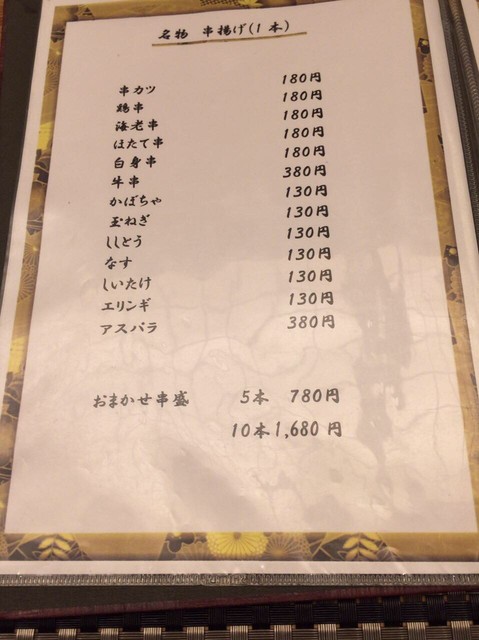 名物 串揚げ(1本)
串カツ 180円
鶏串 180円
海老串 180円
ほたて串 180円
白身串 180円
牛串 380円
かぼちゃ 130円
玉ねぎ 130円
ししとう 130円
なす 130円
しいたけ 130円
エリンギ 130円
アスパラ 380円
おまかせ串盛 5本 780円
10本 1,680円